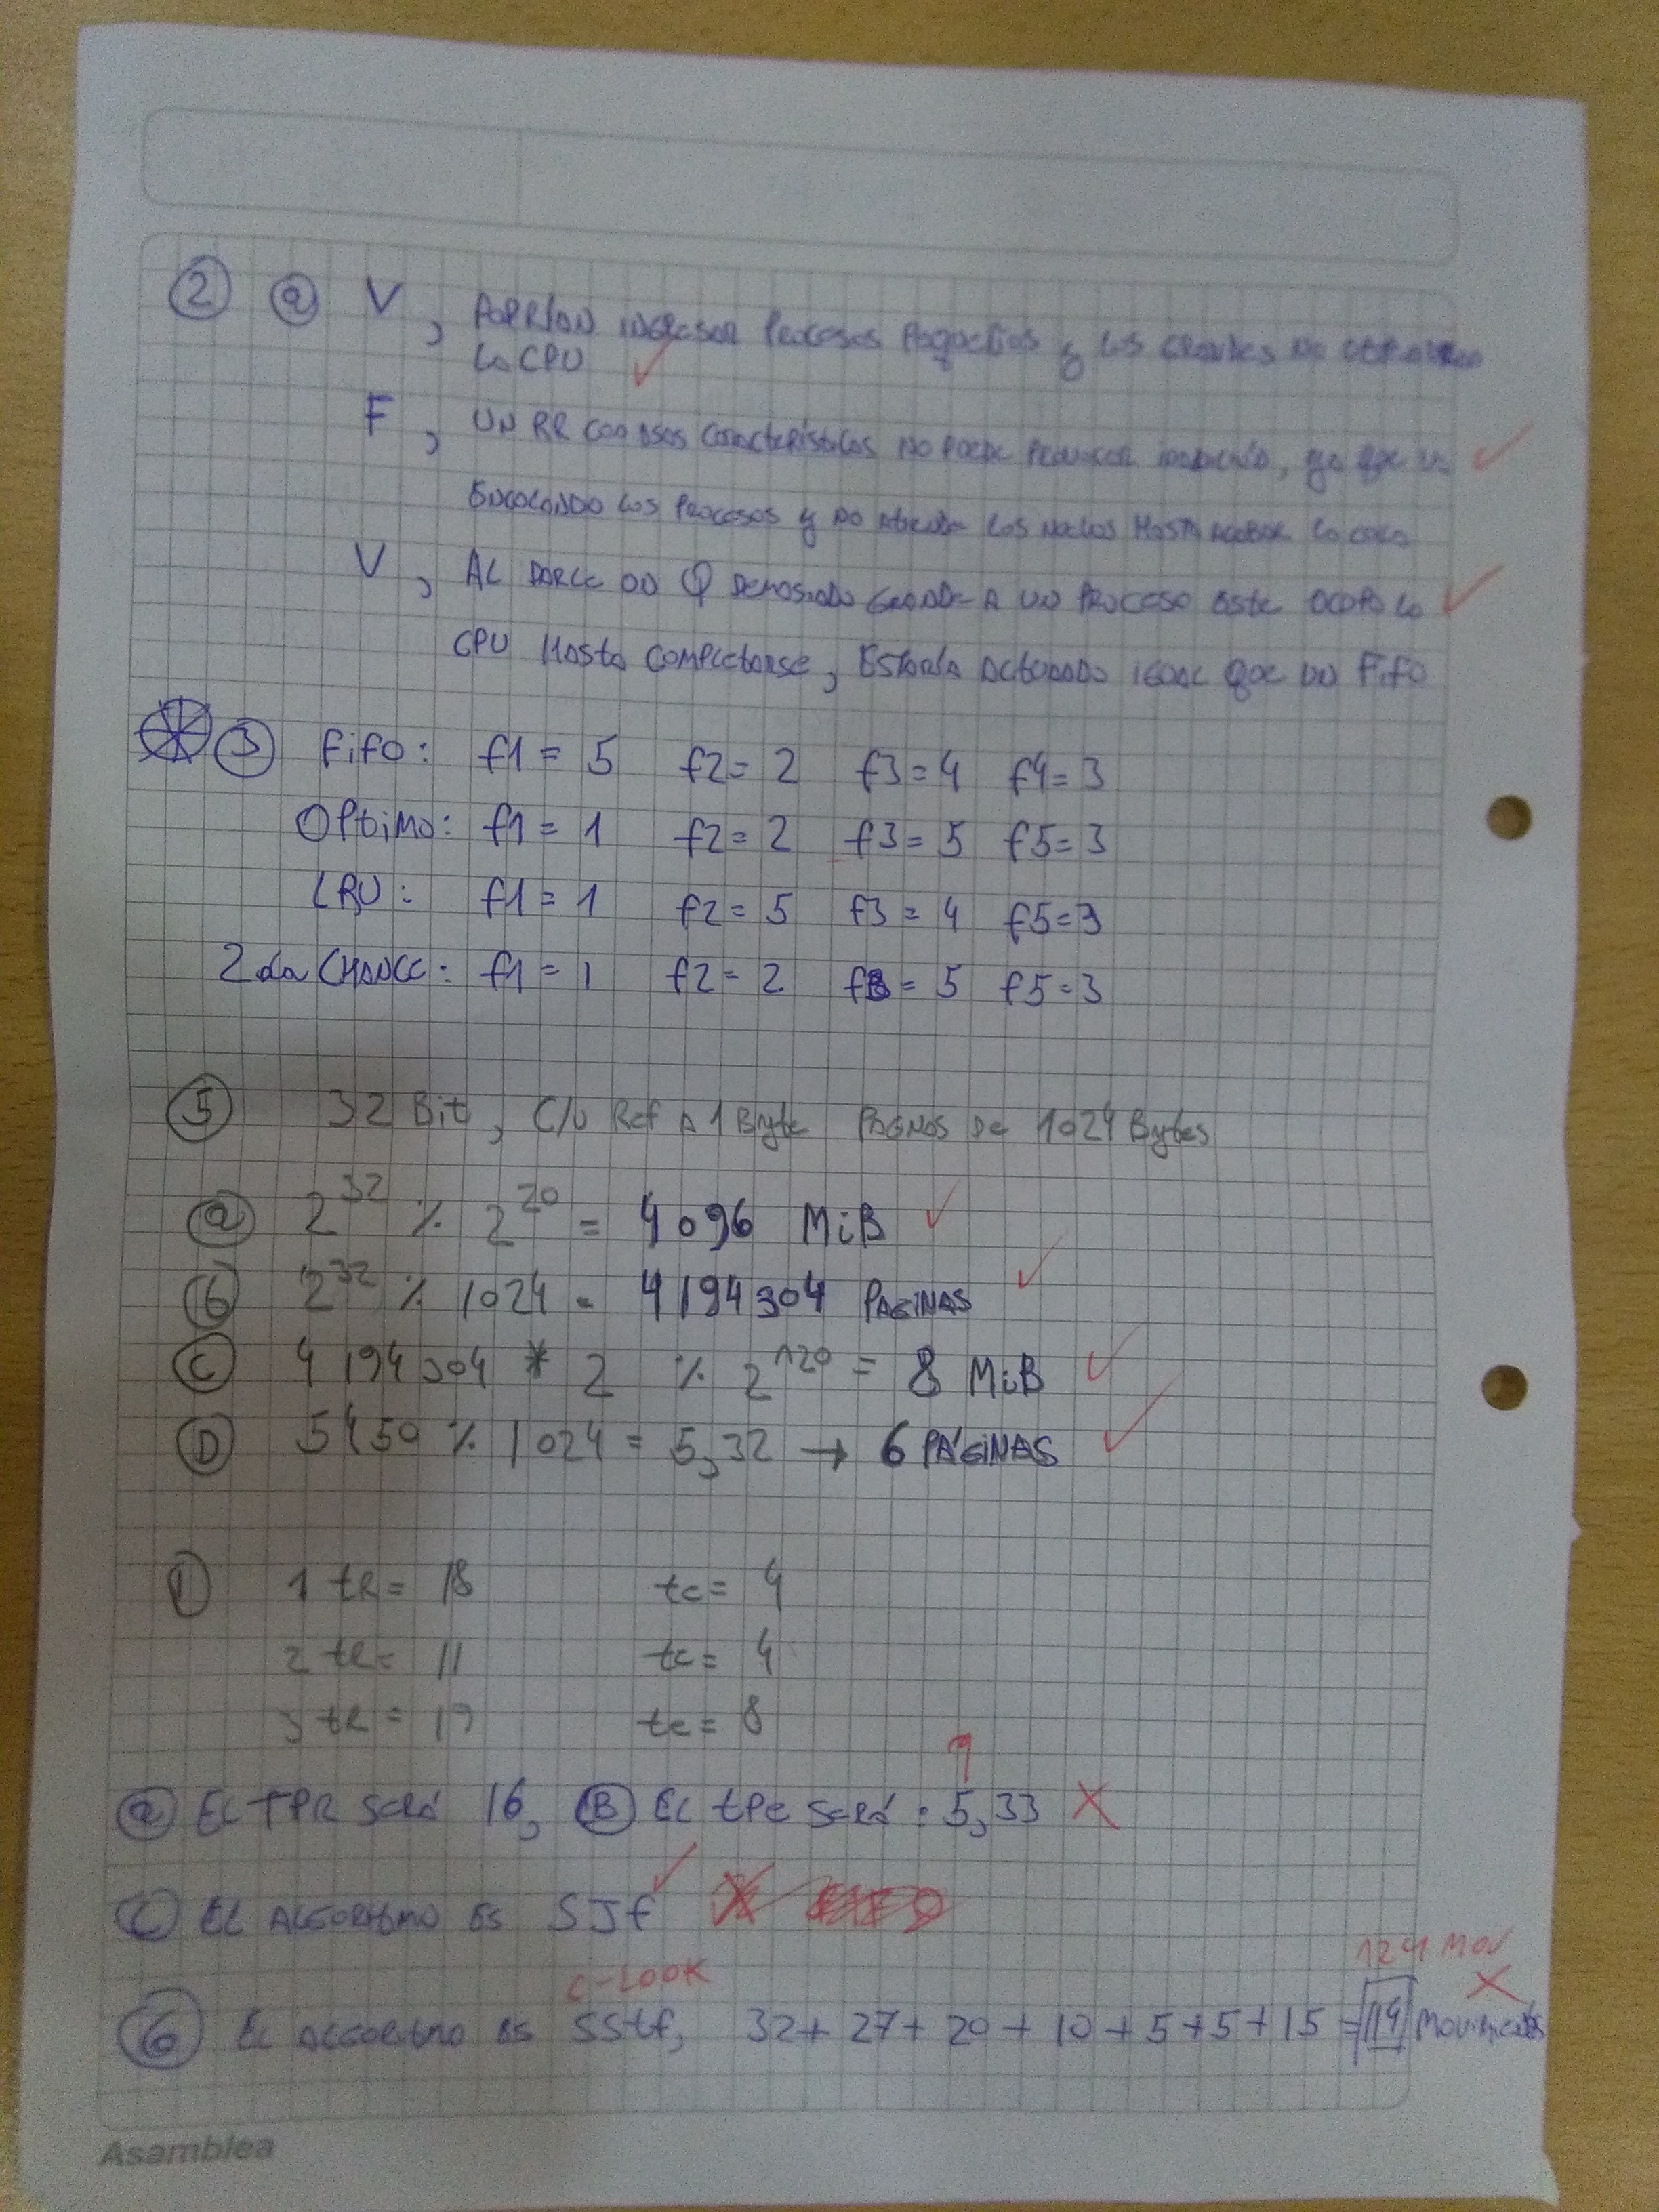 ② ⓐ V, PODRÍAN INGRESAR PROCESOS PEQUEÑOS y LOS GRANDES NO
LA CPU ✓
F, UN RR CON ESAS CARACTERÍSTICAS NO PUEDE PRODUCIR INANICIÓN, ya que va ✓
ENCOLANDO LOS PROCESOS y NO ATIENDE LOS NUEVOS HASTA ACABAR LA COLA
V, AL DARLE UN Q DEMASIADO GRANDE A UN PROCESO ESTE OCUPA LA ✓
CPU HASTA COMPLETARSE, ESTARÍA ACTUANDO IGUAL QUE UN FIFO
③ FIFO: f1 = 5 f2 = 2 f3 = 4 f4 = 3
OPtiMO: f1 = 1 f2 = 2 f3 = 5 f5 = 3
LRU: f1 = 1 f2 = 5 f3 = 4 f5 = 3
2da CHANCE: f1 = 1 f2 = 2 f3 = 5 f5 = 3
⑤ 32 Bit, C/U Ref A 1 Byte PAGINAS DE 1024 Bytes
ⓐ 2^32 % 2^20 = 4096 MiB ✓
ⓑ 2^32 % 1024 = 4194304 PAGINAS ✓
Ⓒ 4194304 * 2 % 2^20 = 8 MiB ✓
Ⓓ 5450 % 1024 = 5,32 → 6 PÁGINAS ✓
① 1 tR = 18 te = 4
2 tR = 11 te = 4
3 tR = 19 te = 8
9
ⓐ EL TPR SERÁ 16, Ⓑ EL tPe SERÁ: 5,33 X
Ⓒ EL ALGORITMO ES SJF ✓
C-LOOK 124 MOV
⑥ EL ALGORITMO ES SStf, 32 + 27 + 20 + 10 + 5 + 5 + 15 = 114 Movimientos X
Asamblea